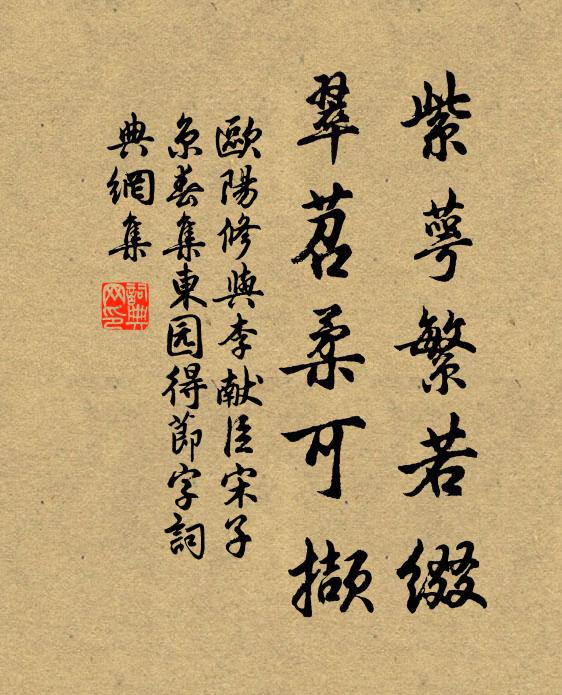 紫萼繁若綴
翠苕柔可擷
歐陽修與李献臣宋子
京春集東园得節字詞
典網集
詞典网印